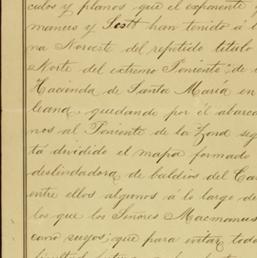 culos y planos que el exponente y
manus y Scott han tenido á l
na Noroest del repetido título
Norte del extremo Poniente, de
Hacienda de Santa María en
leana, quedando por él abarca
nos al Poniente de la Zona seg
tá dividido el mapa formado
deslindadora de baldíos del Ca
entre ellos algunos á lo largo de
los que los Señores Macmanus
como suyos; que para evitar todo